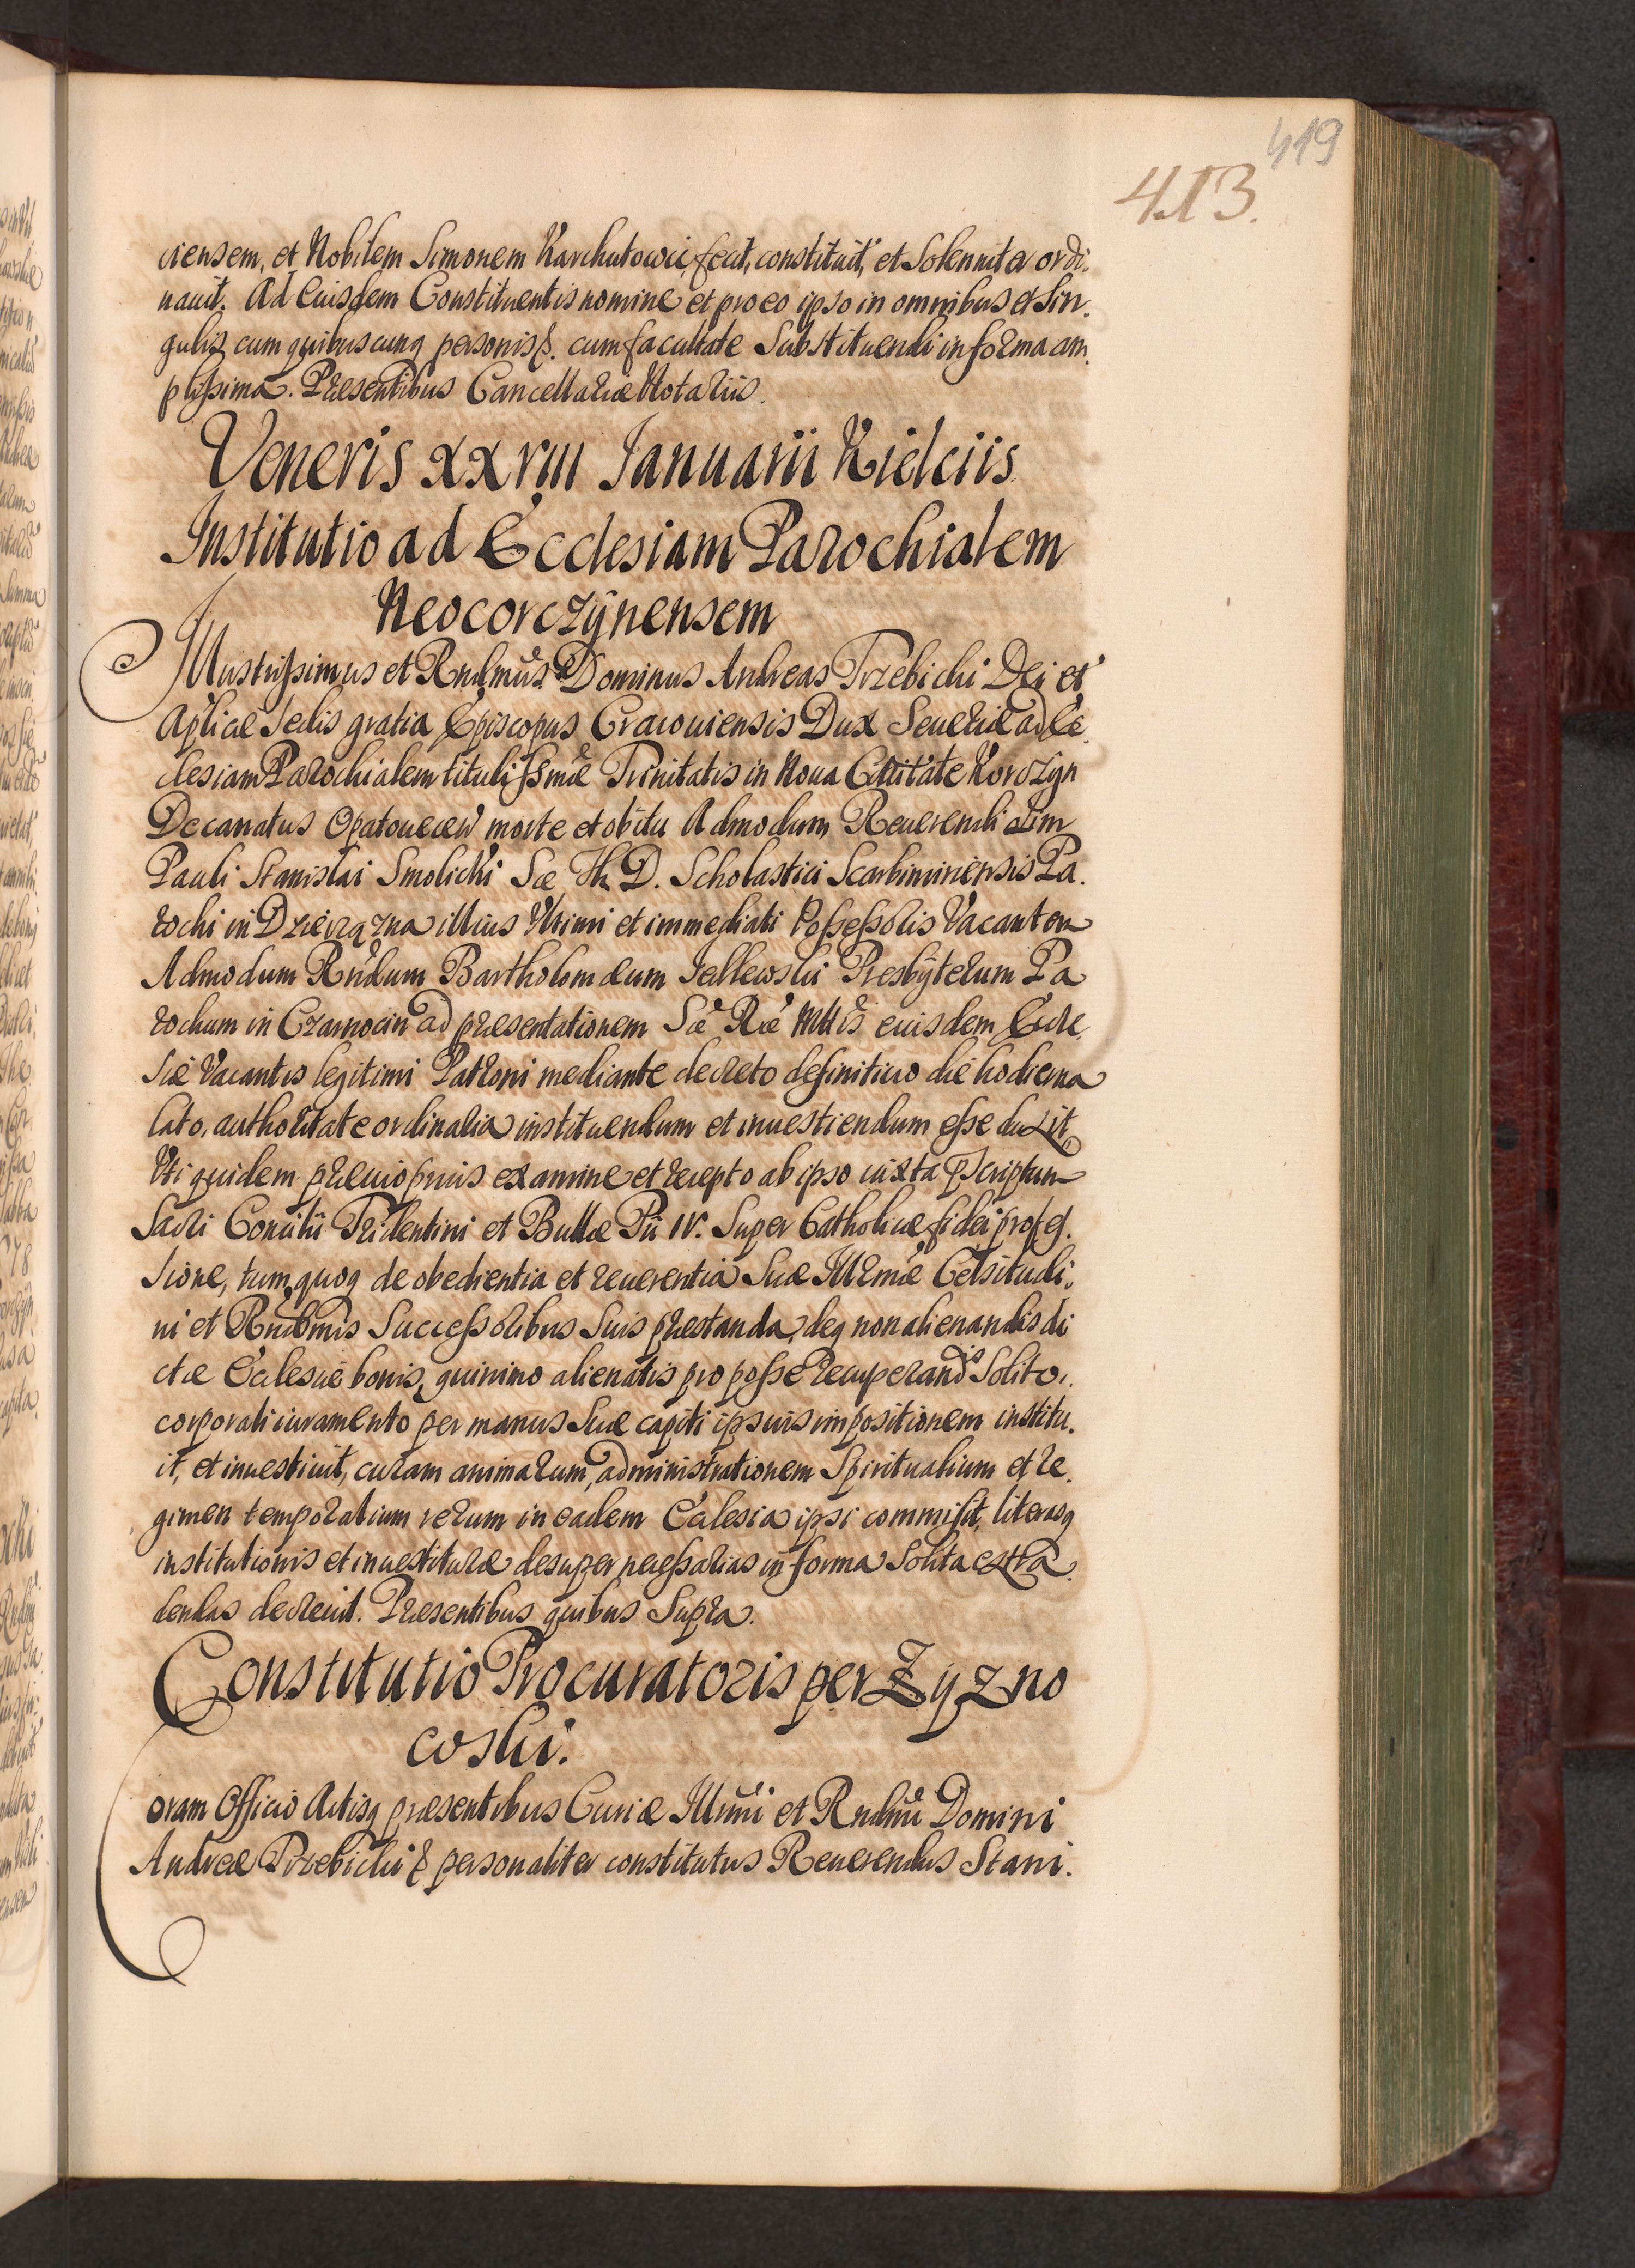 419
413.
ciensem, et Nobilem Simonem Karchutowic, fecit, constituit, et Solenniter ordi.
nauit. Ad Euisdem Constituentis nomine et pro eo ipso in omnibus et Sin.
gulis cum quibuscunq personis &. cum facultate Substituendi in forma am.
plissima. Præsentibus Cancellariæ Notariis.
Veneris xxviii Januarii Kielciis
Institutio ad Ecclesiam Parochialem
Neocorczÿnensem
Illustrissimus et Rndmus Dominus Andreas Trzebicki Dei et
Aplicæ Sedis gratia Episcopus Cracouiensis Dux Seueriæ ad Ec
clesiam Parochialem tituli SSmæ Trinitatis in Noua Ciuitate Korczÿn
Decanatus Opatouecen morte et obitu Admodum Reuerendi olim
Pauli Stanislai Smolicki Sæ Th. D. Scholastici Scarbimiriensis Pa.
rochi in Dzierązna illius Vltimi et immediati Possessoris Vacantem
Admodum Rndum Bartholomæum Jellewski Presbÿterum Pa
rochum in Czarnocin ad præsentationem Sæ Ræ Mttis euisdem Eccle
siæ Vacantis legitimi Patroni mediante decreto definitiuo die hodierna
lato, authoritate ordinaria instituendum et inuestiendum esse duxit
Vti quidem præuio prius examine et recepto ab ipso iuxta pscriptum
Sacri Concilii Tridentini et Bullæ Pii IV. Super Catholicæ fidei profes.
sione, tum quoq de obedientia et reuerentia Suæ Illrmæ Celsitudi.
ni et Rndmis Successoribus Suis præstanda, deq non alienandis di
ctæ Ecclesiæ bonis, quinimo alienatis pro posse recuperandis Solito,
corporali iuramento per manus Suæ capiti ipsuis impositionem institu.
it, et inuestiuit, curam animarum, administrationem Spiritualium et re.
gimen temporalium rerum in eadem Ecclesia ipsi commisit, literasq
institutionis et inuestituræ desuper necessarias in forma Solita extra
dendas decreuit. Præsentibus quibus Supra.
Constitutio Procuratoris per Zyzno
coski.
oram Officio Actisq præsentibus Curiæ Illrmi et Rndmi Domini
Andreæ Trzebicki & personaliter constitutus Reuerendus Stani.